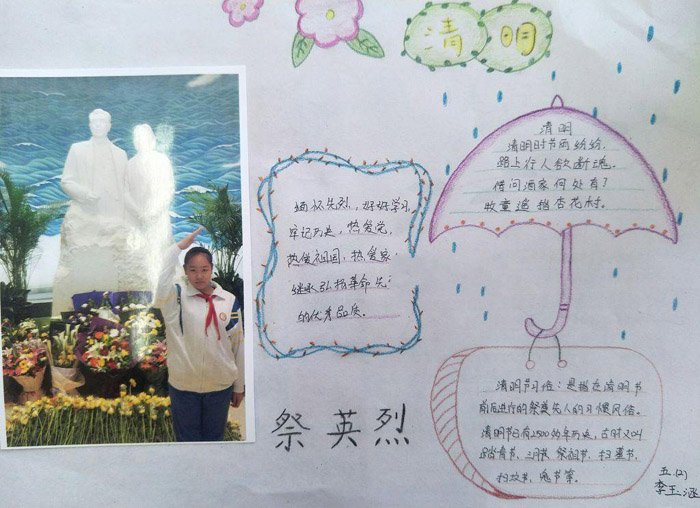 清明
清明
清明时节雨纷纷,
路上行人欲断魂,
借问酒家何处有?
牧童遥指杏花村。
缅怀先烈,好好学习,
牢记历史,热爱党,
热爱祖国,热爱家,
继承弘扬革命先
的优秀品质。
祭英烈
清明节习俗:是指在清明节
前后进行的祭奠先人的习惯风俗。
清明节已有2500的年历史,古时又叫
踏青节、三月节、祭祖节、扫墓节、
扫坟节、鬼节等。
五.(2)
李玉涵